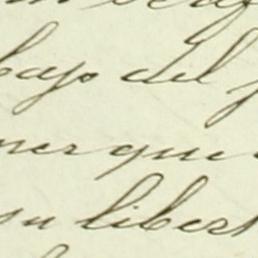 bajo del
ner que
su libert